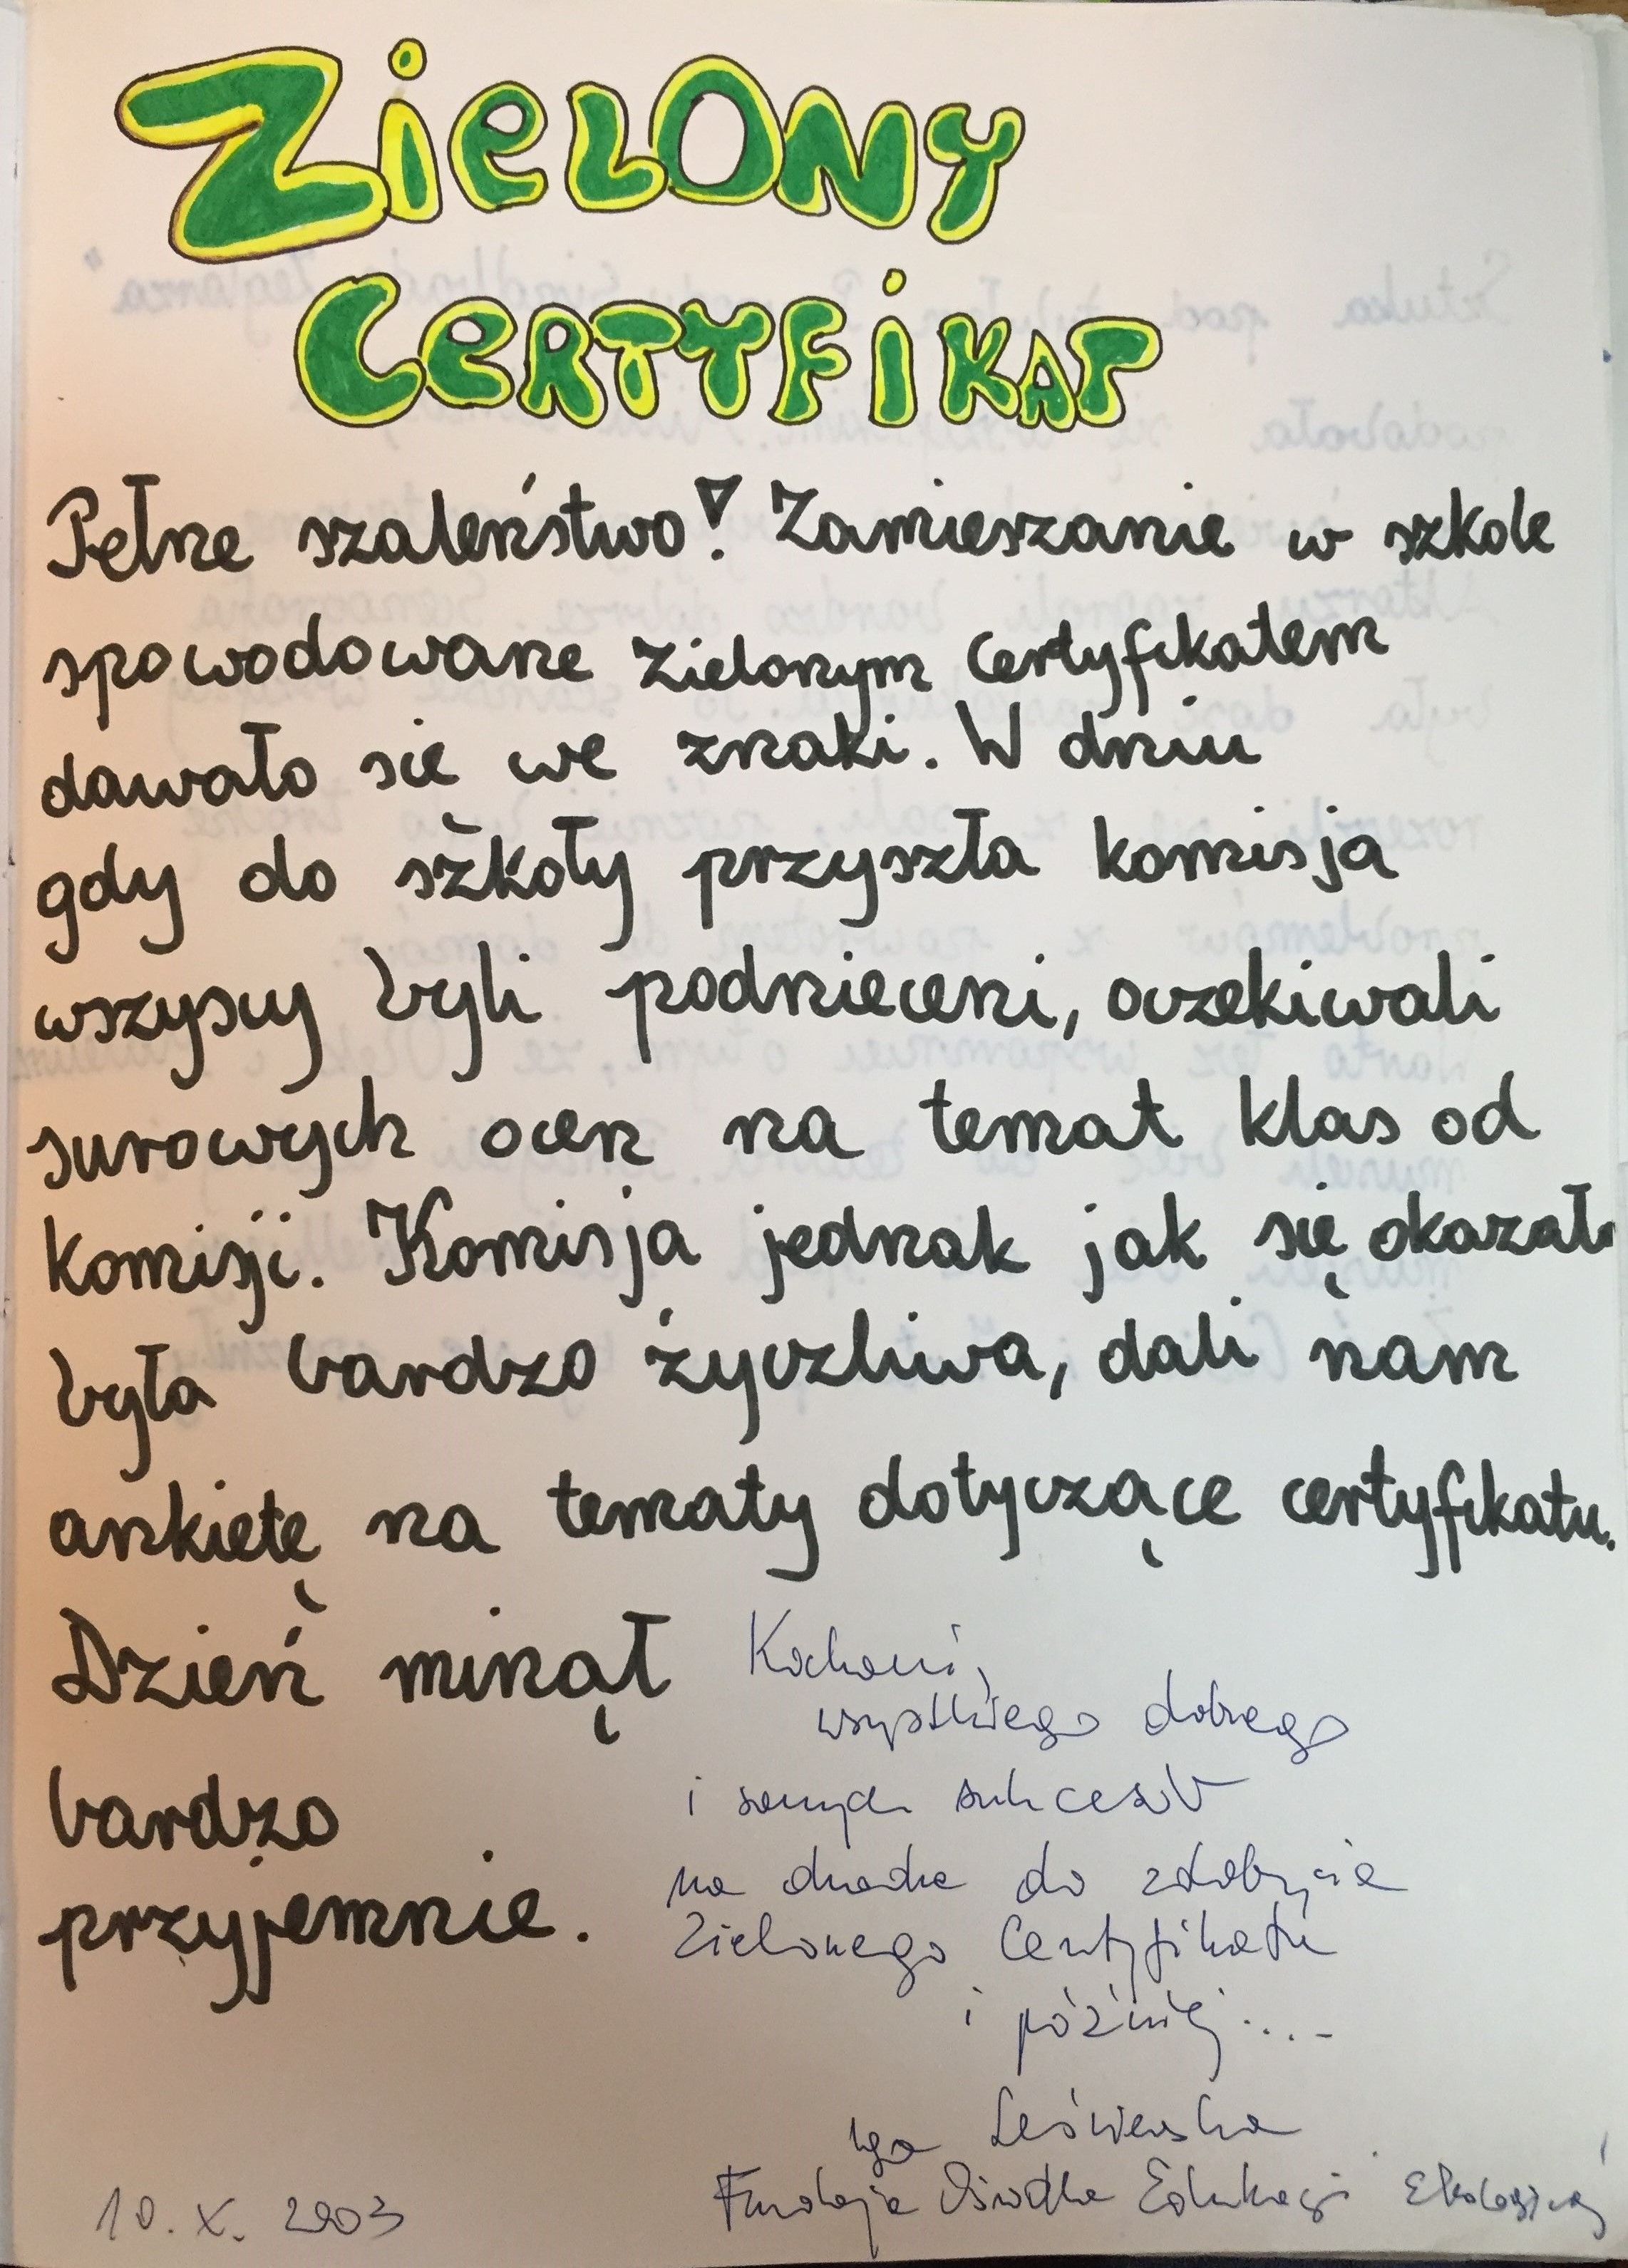 ZiELONY
CERTYFiKAT
Pełne szaleństwo! Zamieszanie w szkole
spowodowane Zielonym Certyfikatem
dawało sie we znaki. W dniu
gdy do szkoły przyszła komisja
wszyscy byli podnieceni, oczekiwali
surowych ocen na temat klas od
komisji. Komisja jednak jak się okazało
była bardzo życzliwa, dali nam
ankietę na tematy dotyczące certyfikatu.
Dzień minął
bardzo
przyjemnie.
Kochani,
wszystkiego dobrego
i samych sukcesów
na drodze do zdobycia
Zielonego Certyfikatu
i później....
Iga
Fundacja Ośrodka Edukacji Ekologicznej
10. X. 2003